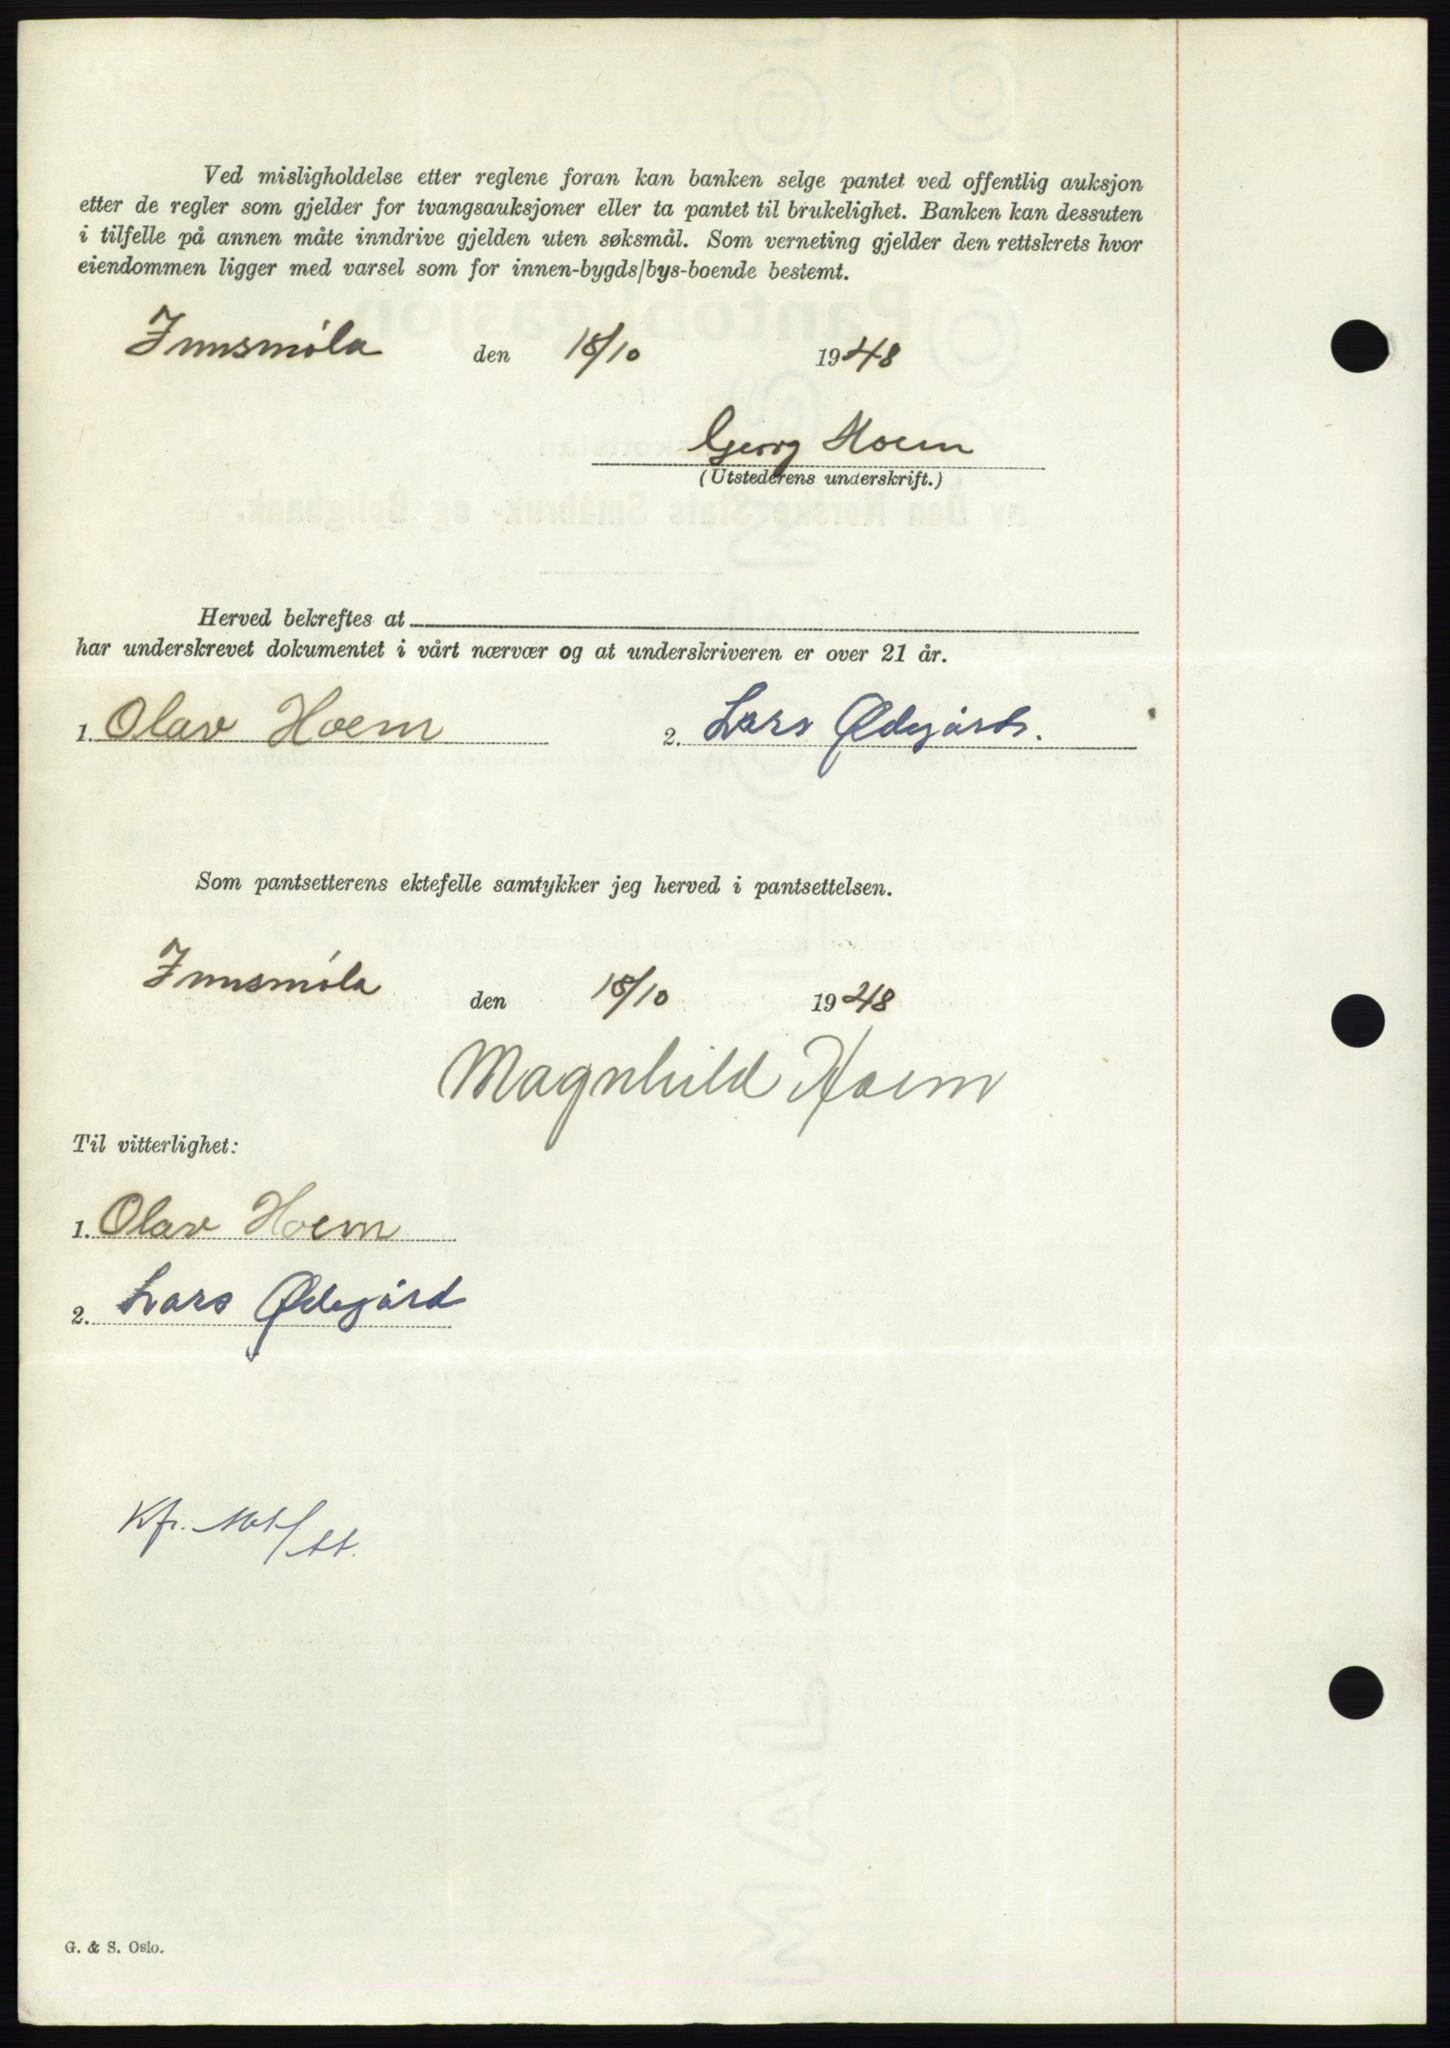 Ved misligholdelse etter reglene foran kan banken selge pantet ved offentlig auksjon
etter de regler som gjelder for tvangsauksjoner eller ta pantet til brukelighet. Banken kan dessuten
i tilfelle på annen måte inndrive gjelden uten søksmål. Som verneting gjelder den rettskrets hvor
eiendommen ligger med varsel som for innen-bygds/bys-boende bestemt.
Innsmøla den 18/10 1948
Georg Hoem
(Utstederens underskrift.)
Herved bekreftes at
har underskrevet dokumentet i vårt nærvær og at underskriveren er over 21 år.
1. Olav Hoem 2. Lars Ødegård.
Som pantsetterens ektefelle samtykker jeg herved i pantsettelsen.
Innsmøla den 18/10 1948
Magnhild Hoem
Til vitterlighet:
1. Olav Hoem
2. Lars Ødegård
Kfr.
G. & S. Oslo.